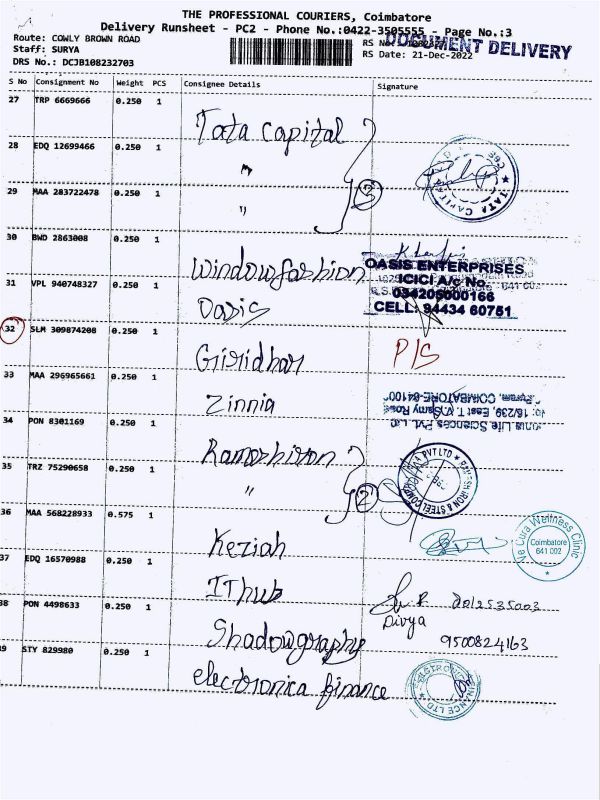 THE PROFESSIONAL COURIERS, Coimbatore
Delivery Runsheet - PC2 - Phone No.:0422-3505555 - Page No.:3
Route: COWLY BROWN ROAD
RS No
DOCUMENT DELIVERY
Staff: SURYA
RS Date: 21-Dec-2022
DRS No.: DCJB108232703
S No Consignment No Weight PCS Consignee Details Signature
27 TRP 6669666 0.250 1
Tata Capital
28 EDQ 12699466 0.250 1
"
TATA CAPITAL
29 MAA 283722478 0.250 1
"
3
30 BWD 2863008 0.250 1
Windowfashion
OASIS ENTERPRISES
ICICI A/c No.
034205000166
CELL: 94434 60751
31 VPL 940748327 0.250 1
Oasis
32 SLM 309874208 0.250 1
Giridhar P/S
33 MAA 296965661 0.250 1
Zinnia
Life Sciences Pvt. Ltd
East T.V. Samy Road
COIMBATORE-64100
34 PON 8301169 0.250 1
Rameshiron
35 TRZ 75290658 0.250 1
"
2
IRON & STEEL PVT LTD
36 MAA 568228933 0.575 1
Keziah
Ve Cura Wellness Clinic
Coimbatore
641 002
37 EDQ 16570988 0.250 1
IThub
38 PON 4498633 0.250 1
Divya
Shadowgraphy 9500824163
39 STY 829980 0.250 1
electronica finance
FINANCE LTD